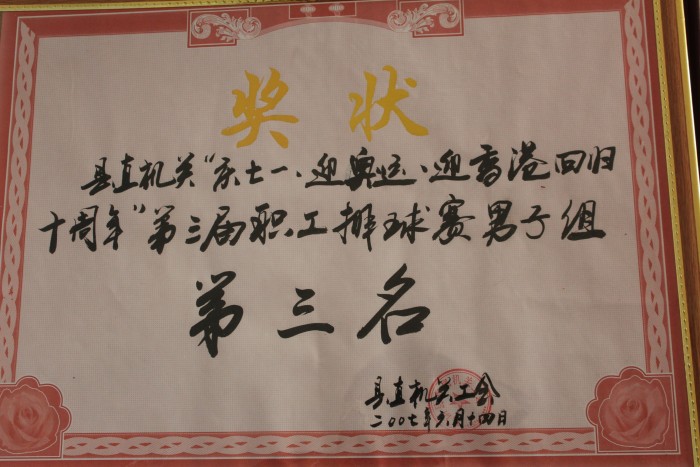 奖状
县直机关“庆七一、迎奥运、迎香港回归
十周年”第三届职工排球赛男子组
第三名
县直机关工会
二00七年六月十四日